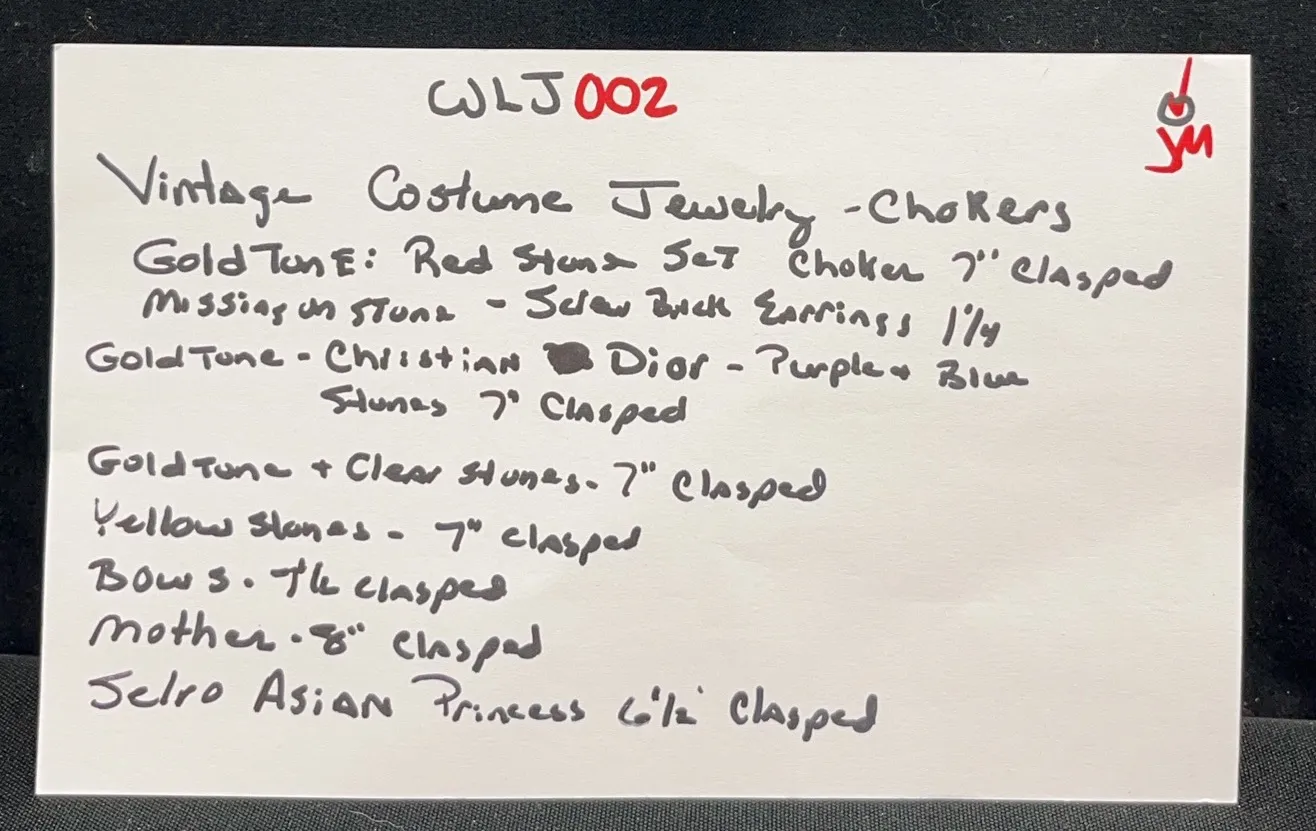 WLJ 002
JM
Vintage Costume Jewelry - Chokers
Gold Tone: Red Stone Set Choker 7" Clasped
Missing on Stone - Screw Back Earrings 1 1/4
Gold Tone - Christian Dior - Purple + Blue
Stones 7" Clasped
Gold tone + Clear Stones - 7" Clasped
Yellow Stones - 7" clasped
Bows - 7 1/2 clasped
Mother - 8" clasped
Selro Asian Princess 6 1/2" Clasped